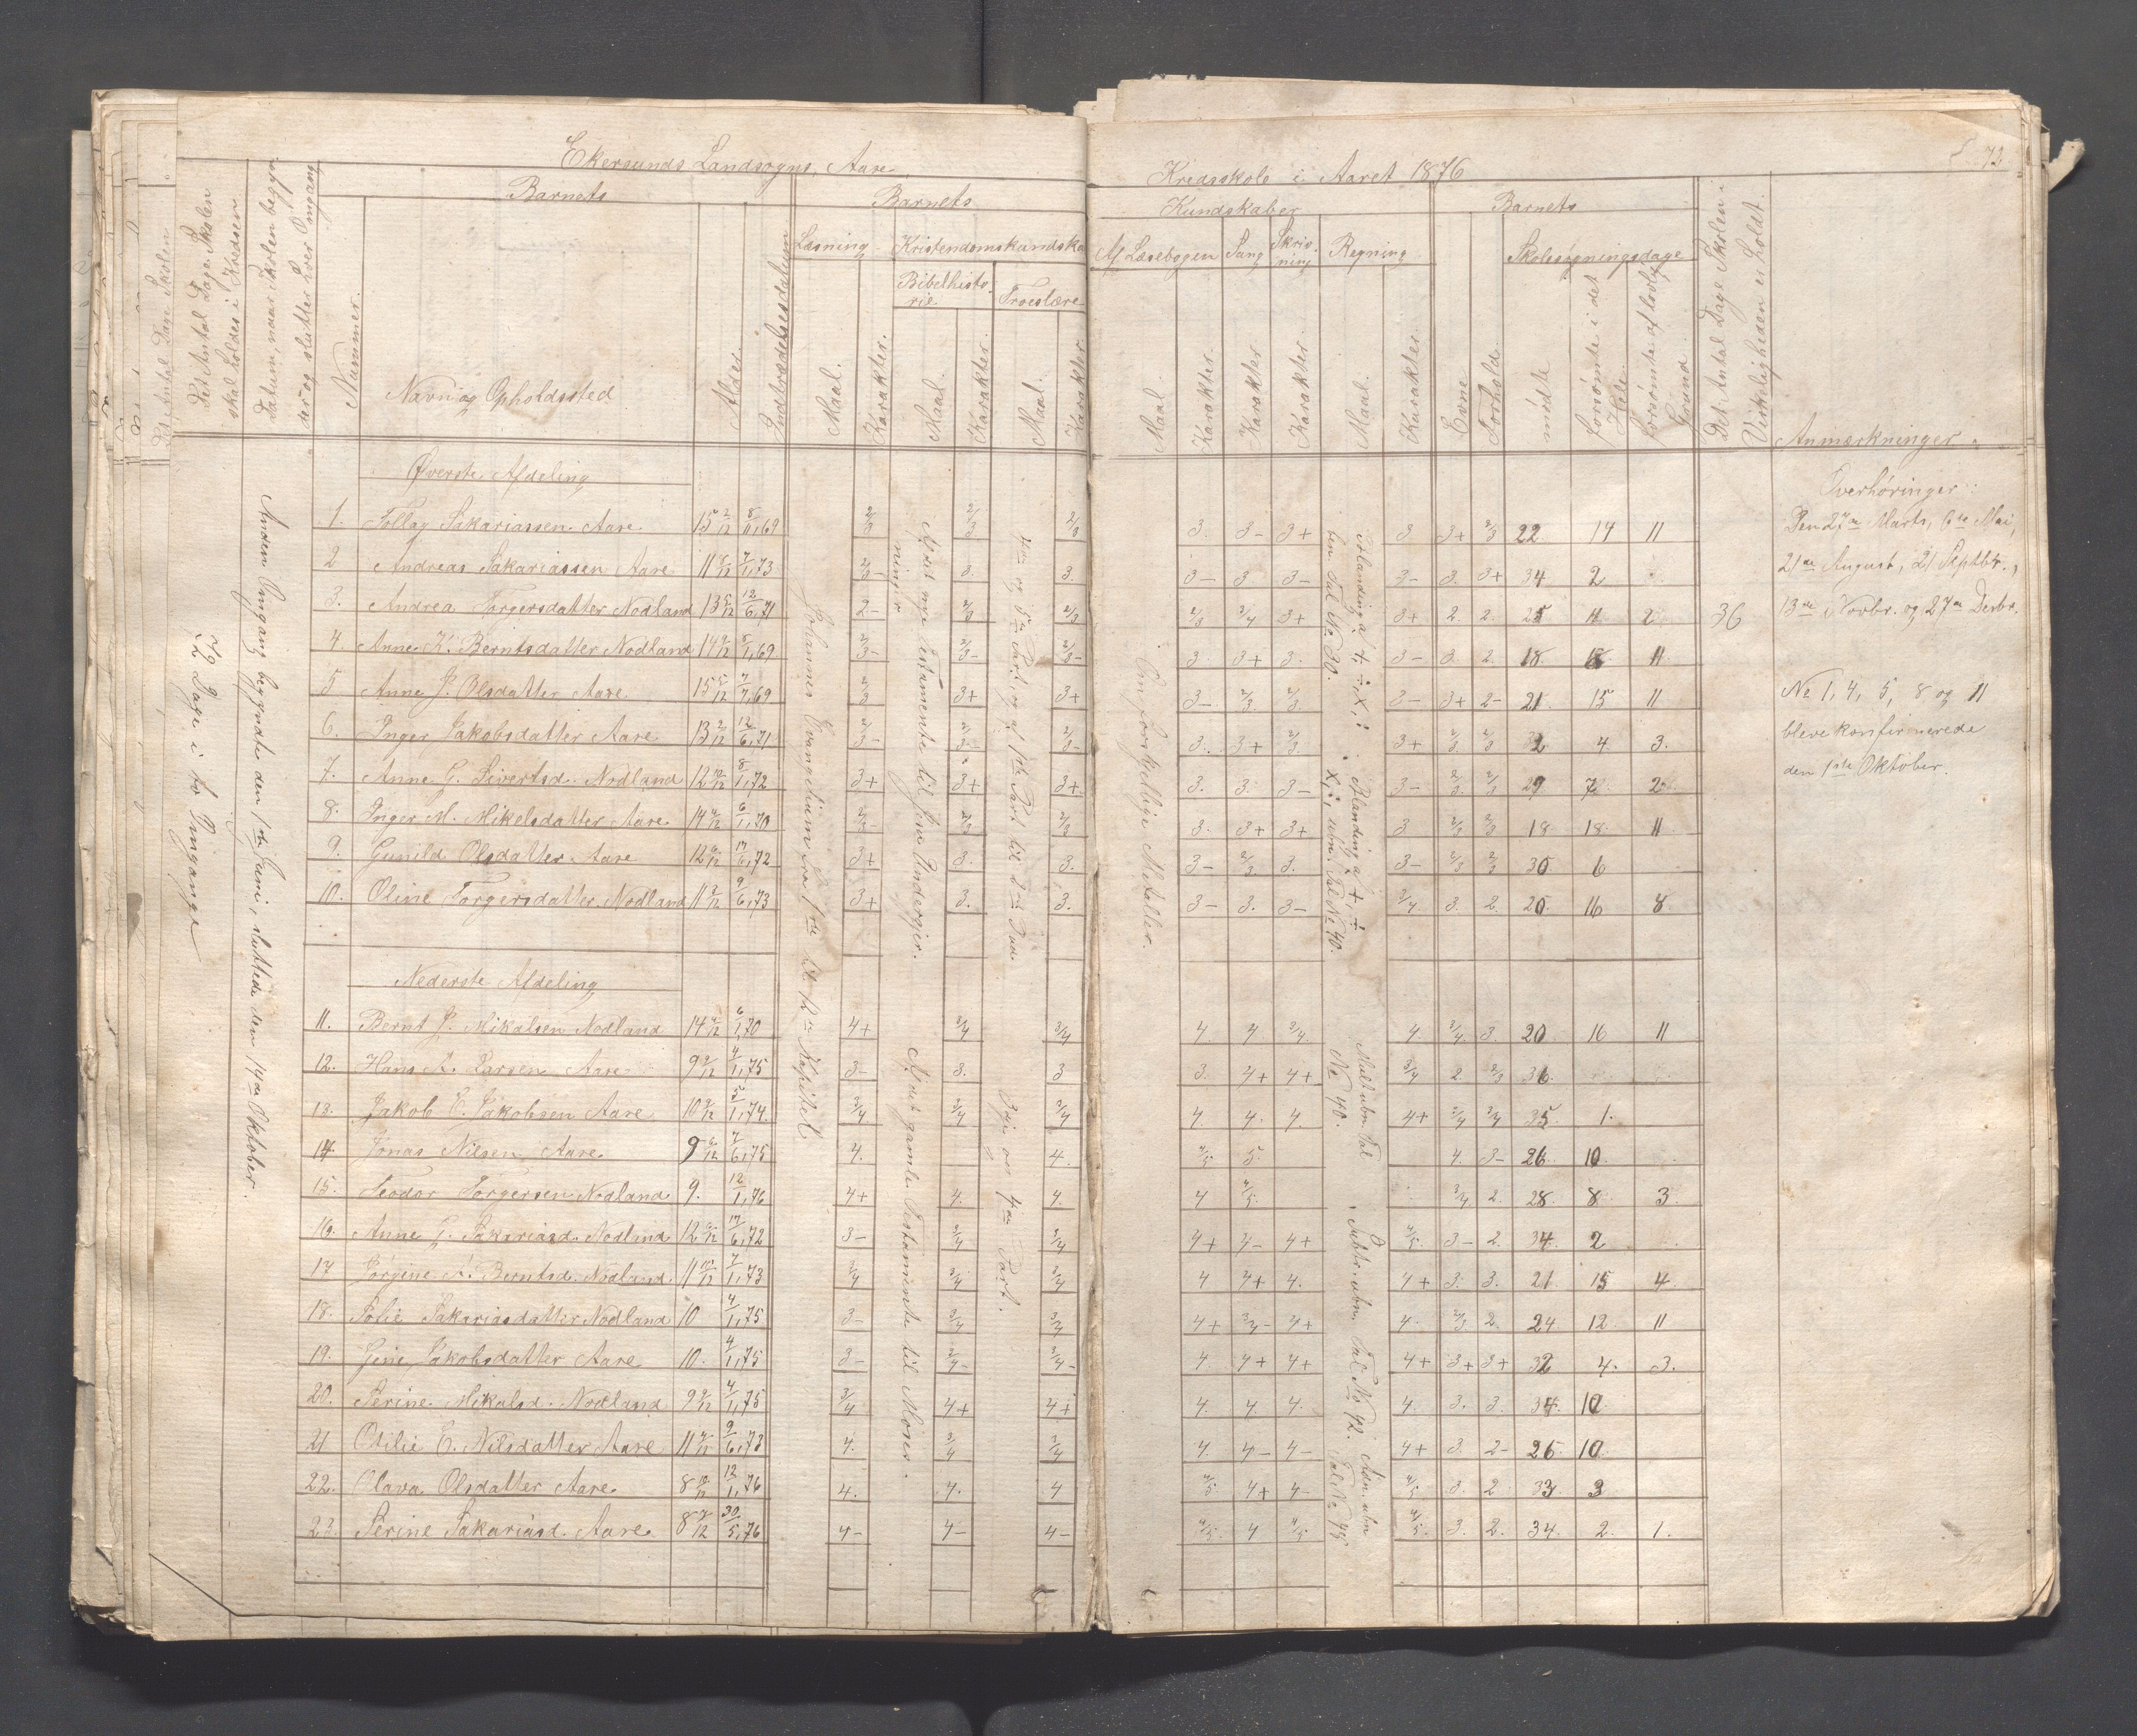 Ekersunds Landsogns, Aare Kredsskole i Aaret 1876
72
Det Antal Dage Skolen skal holdes i Kredsen
Datum, naar Skolen begynder og slutter hver Omgang
Nummer.
Barnets
Navn og Opholdssted
Alder.
Indtrædelsesdatum
Barnets
Læsning
Maal. Karakter.
Kristendomskundskab
Bibelhistorie
Maal. Karakter.
Troeslære
Maal. Karakter.
Kundskaber
Af Læsebogen
Maal. Karakter.
Sang
Karakter
Skrivning
Karakter.
Regning
Maal. Karakter.
Barnets
Evne
Forhold
Skolesøgningsdage
mødte
forsømte i det Hele
forsømte af lovlig Grund
Det Antal Dage Skolen i Virkeligheden er holdt.
Anmærkninger.
72 Dage i to Omgange
Anden Omgang begyndte den 1ste Juni, sluttede den 14de Oktober.
Øverste Afdeling
1. Tollag Sakariassen Aare. 15 2/12 8/11,69 2/3 2/3 2/3 3. 3- 3+ 3 3+ 2/3 22 14 11
2 Andreas Sakariassen Aare 11 7/1,73 2/3- 3. 3. 3- 3 3- 3- 3. 3+ 34 2
3. Andrea Torgersdatter Nodland 13 12/6,71 2- 2/3 2/3 3+ 3+ 2. 2. 25 11 2 36
4. Anne K. Berntsdatter Nodland 14 1,69 2/3- 2/3- 2/3- 3 3+ 3. 3- 3. 2. 18. 18. 11
5 Anne J. Olsdatter Aare 15 7/7,69 2/3 3+ 3+ 3- 2/3. 2/3. 3- 3+ 2- 21 15 11
6. Inger Jakobsdatter Aare 13 12/6,71 2/3- 2/3- 2/3- 3. 3+ 2/3 3+ 2/3 2/3 32 4 3.
7. Anne G. Sivertsd. Nodland 12 10/12 8/1,72 3+ 3+ 3+ 3. 3. 3- 3- 2/3 2/3 29 7 2
8. Inger M. Mikelsdatter Aare 14 6/1,70 2/3- 2/3 2/3 3. 3+ 3+ 3 2/3 2/3 18 18. 11
9. Gunild Olsdatter Aare 12 17/6,72 3+ 3. 3. 3- 2/3. 3. 3- 2/3 2/3 30 6
10. Oline Torgersdatter Nodland 11 9/6,73 3+ 3. 3. 3- 3. 3- 3/4 3. 2. 20. 16 8
Nederste Afdeling
11. Bernt J. Mikalsen Nodland 14 6/1,70 4+ 3/4 3/4 4. 4 3/4 4. 3/4 3. 20 16 11
12. Hans A. Larsen Aare 9 4/1,75 3- 3. 3 3. 4+ 4+ 3/4 2. 2/3 36
13. Jakob E. Jakobsen Aare 10 5/1,74. 3/4 3/4 3/4 4. 4. 4. 4+ 3/4 3/4 35 1.
14. Jonas Nilsen Aare. 9 7/6,75 4. 4. 4/5 5. 4. 3- 26. 10
15. Teodor Torgersen Nodland 9. 12/1,76 4+ 4. 4. 4 4/5. 3/4 2. 28. 8 3
16. Anne G. Sakariasd. Nodland 12 17/6,72 3- 3/4 3/4 4+ 4- 4+ 4/5. 3- 2. 34. 2
17 Jørgine A. Berntsd. Nodland 11 7/1,73 3/4 3/4 3/4 4 4+ 4. 4+ 3. 3. 21 15 4
18. Solie Sakariasdatter Nodland 10 4/1,75 3- 3/4 3/4 4+ 3/4- 4+ 4. 2/3. 2. 24 12. 11
19. Gine Jakobsdatter Aare 10. 4/1,75 3- 3/4- 3/4- 4. 4+ 4+ 4+ 3+ 3+ 32 4. 3.
20. Serine Mikalsd. Nodland 9 4/1,75 3/4 4+ 4+ 4. 4. 4. 4. 3. 3. 34. 10
21 Otilie E. Nilsdatter Aare 11 9/6,73 4. 3/4 3/4 4. 4- 4- 4+ 3. 2- 26 10
22. Olava Olsdatter Aare. 8 10/12 12/1,76 4. 4. 4 4/5. 4+ 4- 4/5 3. 2 33 3
23. Serine Sakariasd. Aare. 8 30/5,76 4- 4- 4- 4/5. 4 4/5 4/5. 3. 2. 34 2. 1.
Johannes Evangelium fra 1ste til 12te Kapitel
Af det nye Testamente til Jesu Undergjer-
ninger
Af det gamle Testamente til Moses.
4de og 5te Part og af 1ste Part til 2det Bud
3dje og 4de Part.
Om forskjellige Metaller.
Blanding af +, ÷, X, :
ben. Tal No 30.
Blanding af +, ÷
X, :, ubn. Tal No 40.
Mult. ubn. Tal
No 40.
Subtr. ubn. Tal No 42.
Adn. ubn
Tal No 45
Overhøringer:
Den 27de Marts, 6te Mai,
21de August, 21 Septbr.,
13de Novbr. og 27de Decbr.
No 1, 4, 5, 8 og 11
bleve konfirmerede
den 1ste Oktober.